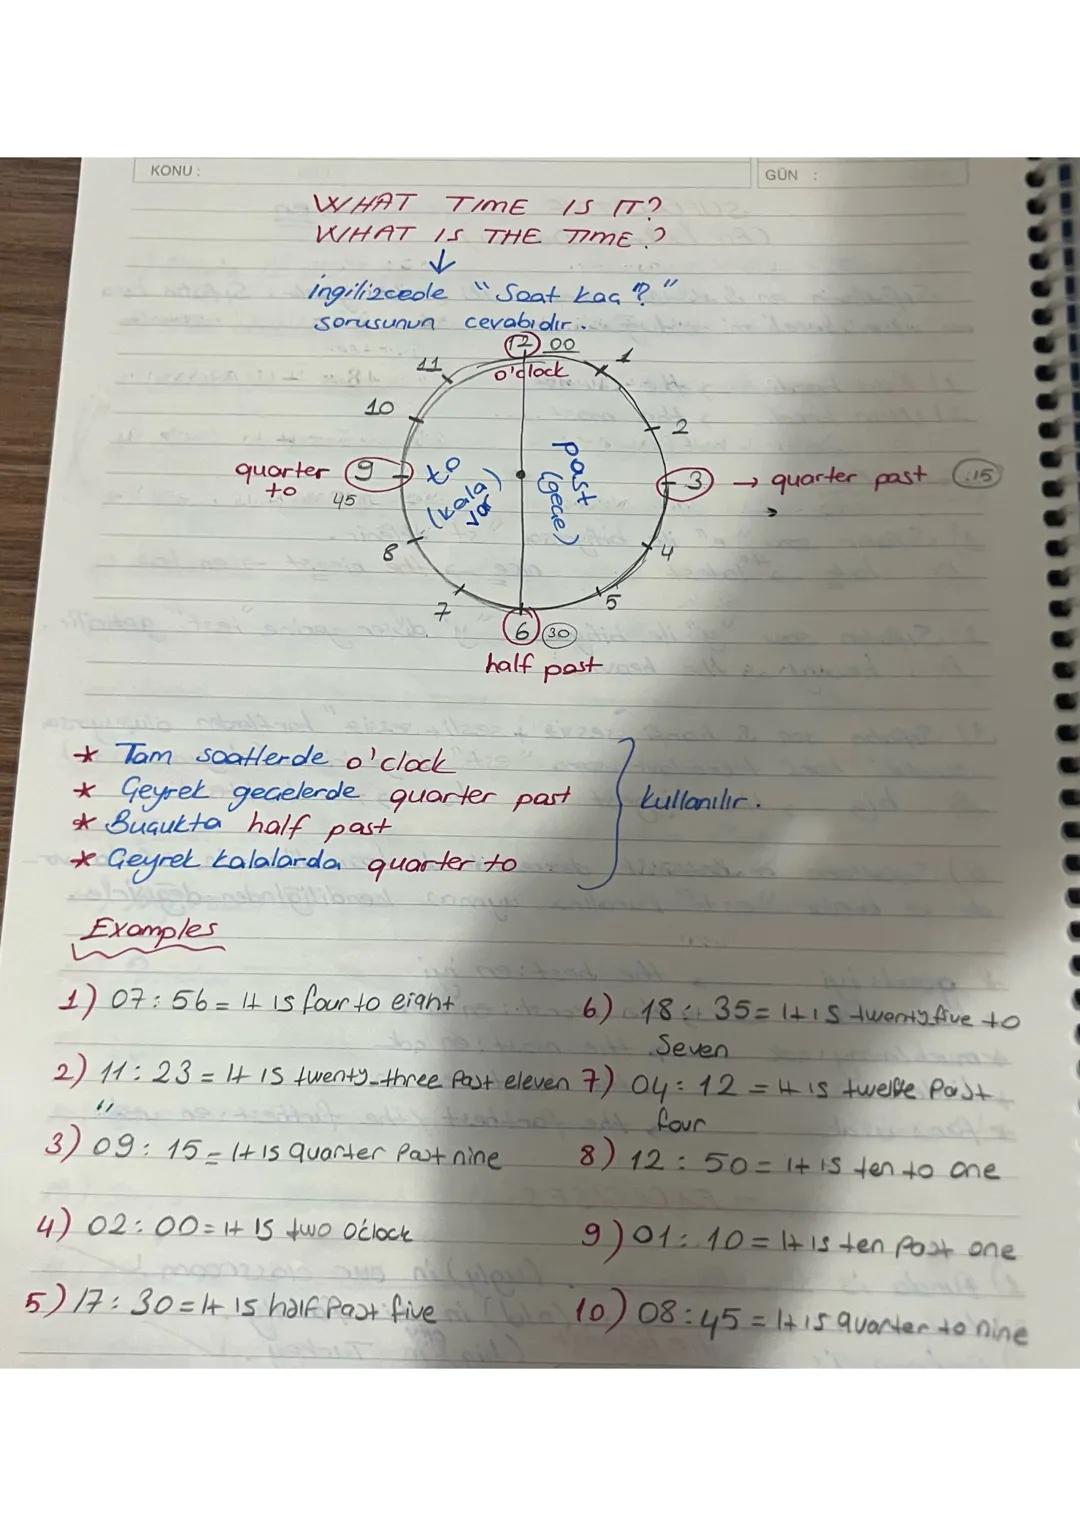 KONU :
GÜN :
WHAT TIME IS IT?
WHAT IS THE TIME?
↓
ingilizcede "Saat kaç?"
sorusunun cevabıdır.
12 00
o'clock
11
1
10
2
quarter to
9
45
to (kala) var
past (geçe)
3 → quarter past :15
8
4
7
5
6 30
half past
* Tam saatlerde o'clock
* Çeyrek geçelerde quarter past
* Buçukta half past
* Çeyrek kalalarda quarter to
kullanılır.
Examples
1) 07:56 = It is four to eight
2) 11:23 = It is twenty-three Past eleven
3) 09:15 = It is quarter Past nine
4) 02:00 = It is two O'clock
5) 17:30 = It is half Past five
6) 18:35 = It is twenty five to
Seven
7) 04:12 = It is twelve Past
four
8) 12:50 = It is ten to one
9) 01:10 = It is ten Past one
10) 08:45 = It is quarter to nine